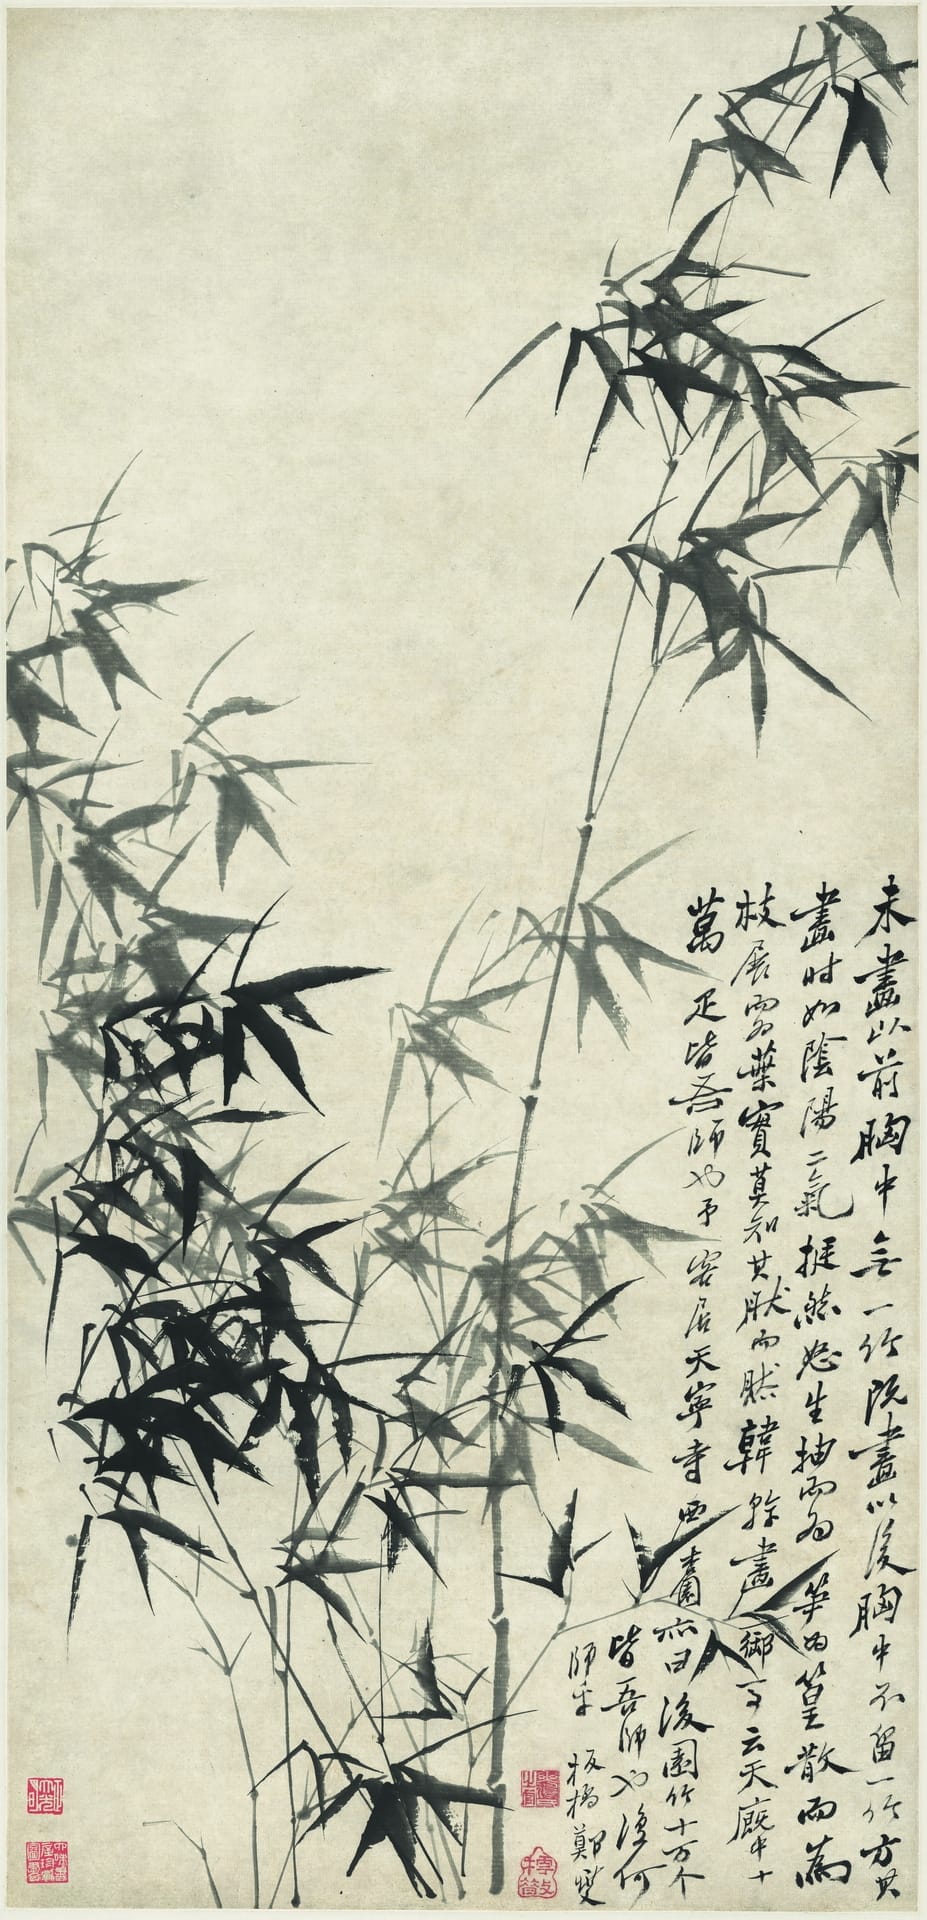 未畫以前胸中无一竹既畫以後胸中不留一竹方其
畫時如陰陽二氣挺然怒生抽而為笋為篁散而為
枝展而為葉實莫知其然而然韓幹畫御馬云天廄中十
萬疋皆吾師也予客居天寧寺西杏園亦曰後園竹十万个
皆吾師也復何
師乎 板橋鄭燮
樗散